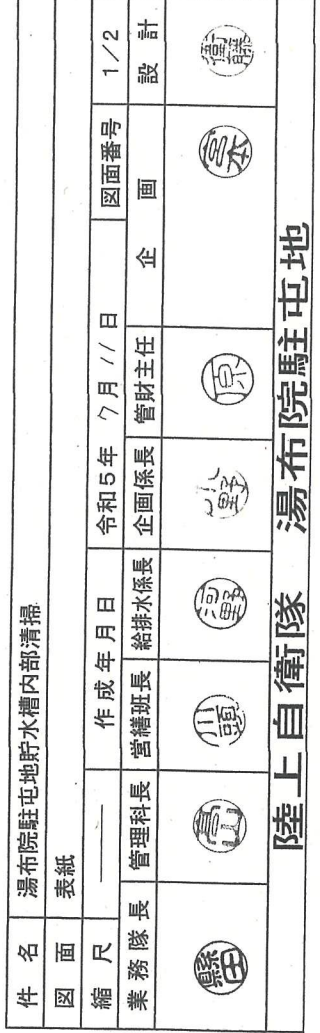 件名 湯布院駐屯地貯水槽内部清掃
図面 表紙
縮尺 ―― 作成年月日 令和5年 7月 11日 図面番号 1/2
業務隊長 管理科長 営繕班長 給排水係長 企画係長 管財主任 企画 設計
川頭 小野 原 宮本 衛藤
陸上自衛隊 湯布院駐屯地